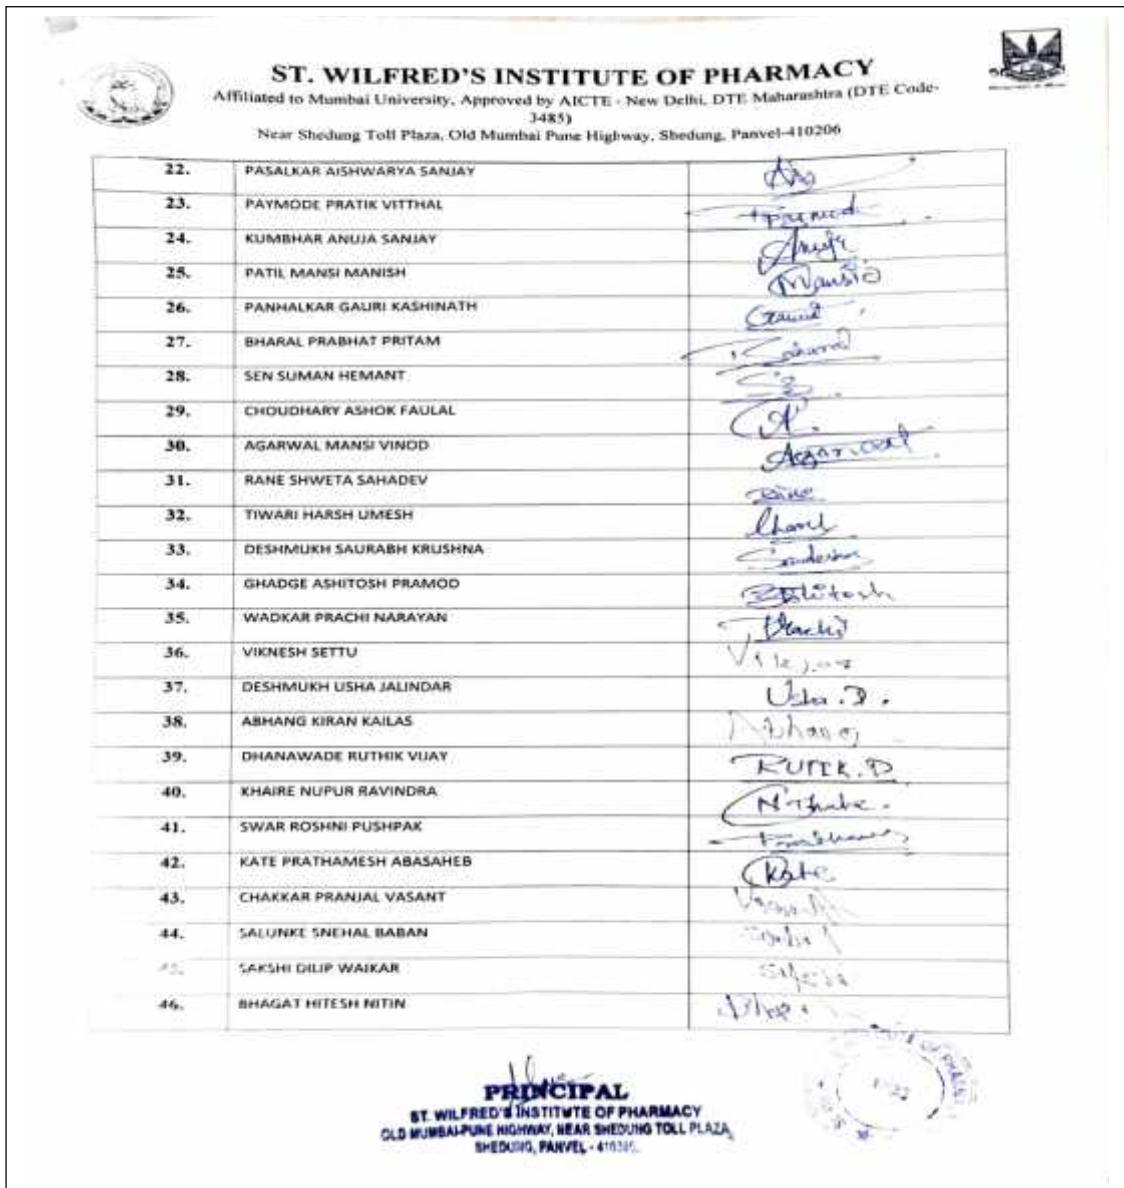 ST. WILFRED'S INSTITUTE OF PHARMACY
Affiliated to Mumbai University, Approved by AICTE - New Delhi, DTE Maharashtra (DTE Code-
3485)
Near Shedung Toll Plaza, Old Mumbai Pune Highway, Shedung, Panvel-410206
22. PASALKAR AISHWARYA SANJAY
23. PAYMODE PRATIK VITTHAL
24. KUMBHAR ANUJA SANJAY Anuja
25. PATIL MANSI MANISH Mansi
26. PANHALKAR GAURI KASHINATH Gauri
27. BHARAL PRABHAT PRITAM
28. SEN SUMAN HEMANT
29. CHOUDHARY ASHOK FAULAL
30. AGARWAL MANSI VINOD Agarwal
31. RANE SHWETA SAHADEV Rane
32. TIWARI HARSH UMESH
33. DESHMUKH SAURABH KRUSHNA
34. GHADGE ASHITOSH PRAMOD Ashitosh
35. WADKAR PRACHI NARAYAN Prachi
36. VIKNESH SETTU
37. DESHMUKH USHA JALINDAR Usha.D.
38. ABHANG KIRAN KAILAS Abhang
39. DHANAWADE RUTHIK VIJAY RUTIK.D
40. KHAIRE NUPUR RAVINDRA
41. SWAR ROSHNI PUSHPAK
42. KATE PRATHAMESH ABASAHEB Kate
43. CHAKKAR PRANJAL VASANT
44. SALUNKE SNEHAL BABAN
45. SAKSHI DILIP WAIKAR
46. BHAGAT HITESH NITIN
PRINCIPAL
ST. WILFRED'S INSTITUTE OF PHARMACY
OLD MUMBAI-PUNE HIGHWAY, NEAR SHEDUNG TOLL PLAZA,
SHEDUNG, PANVEL -